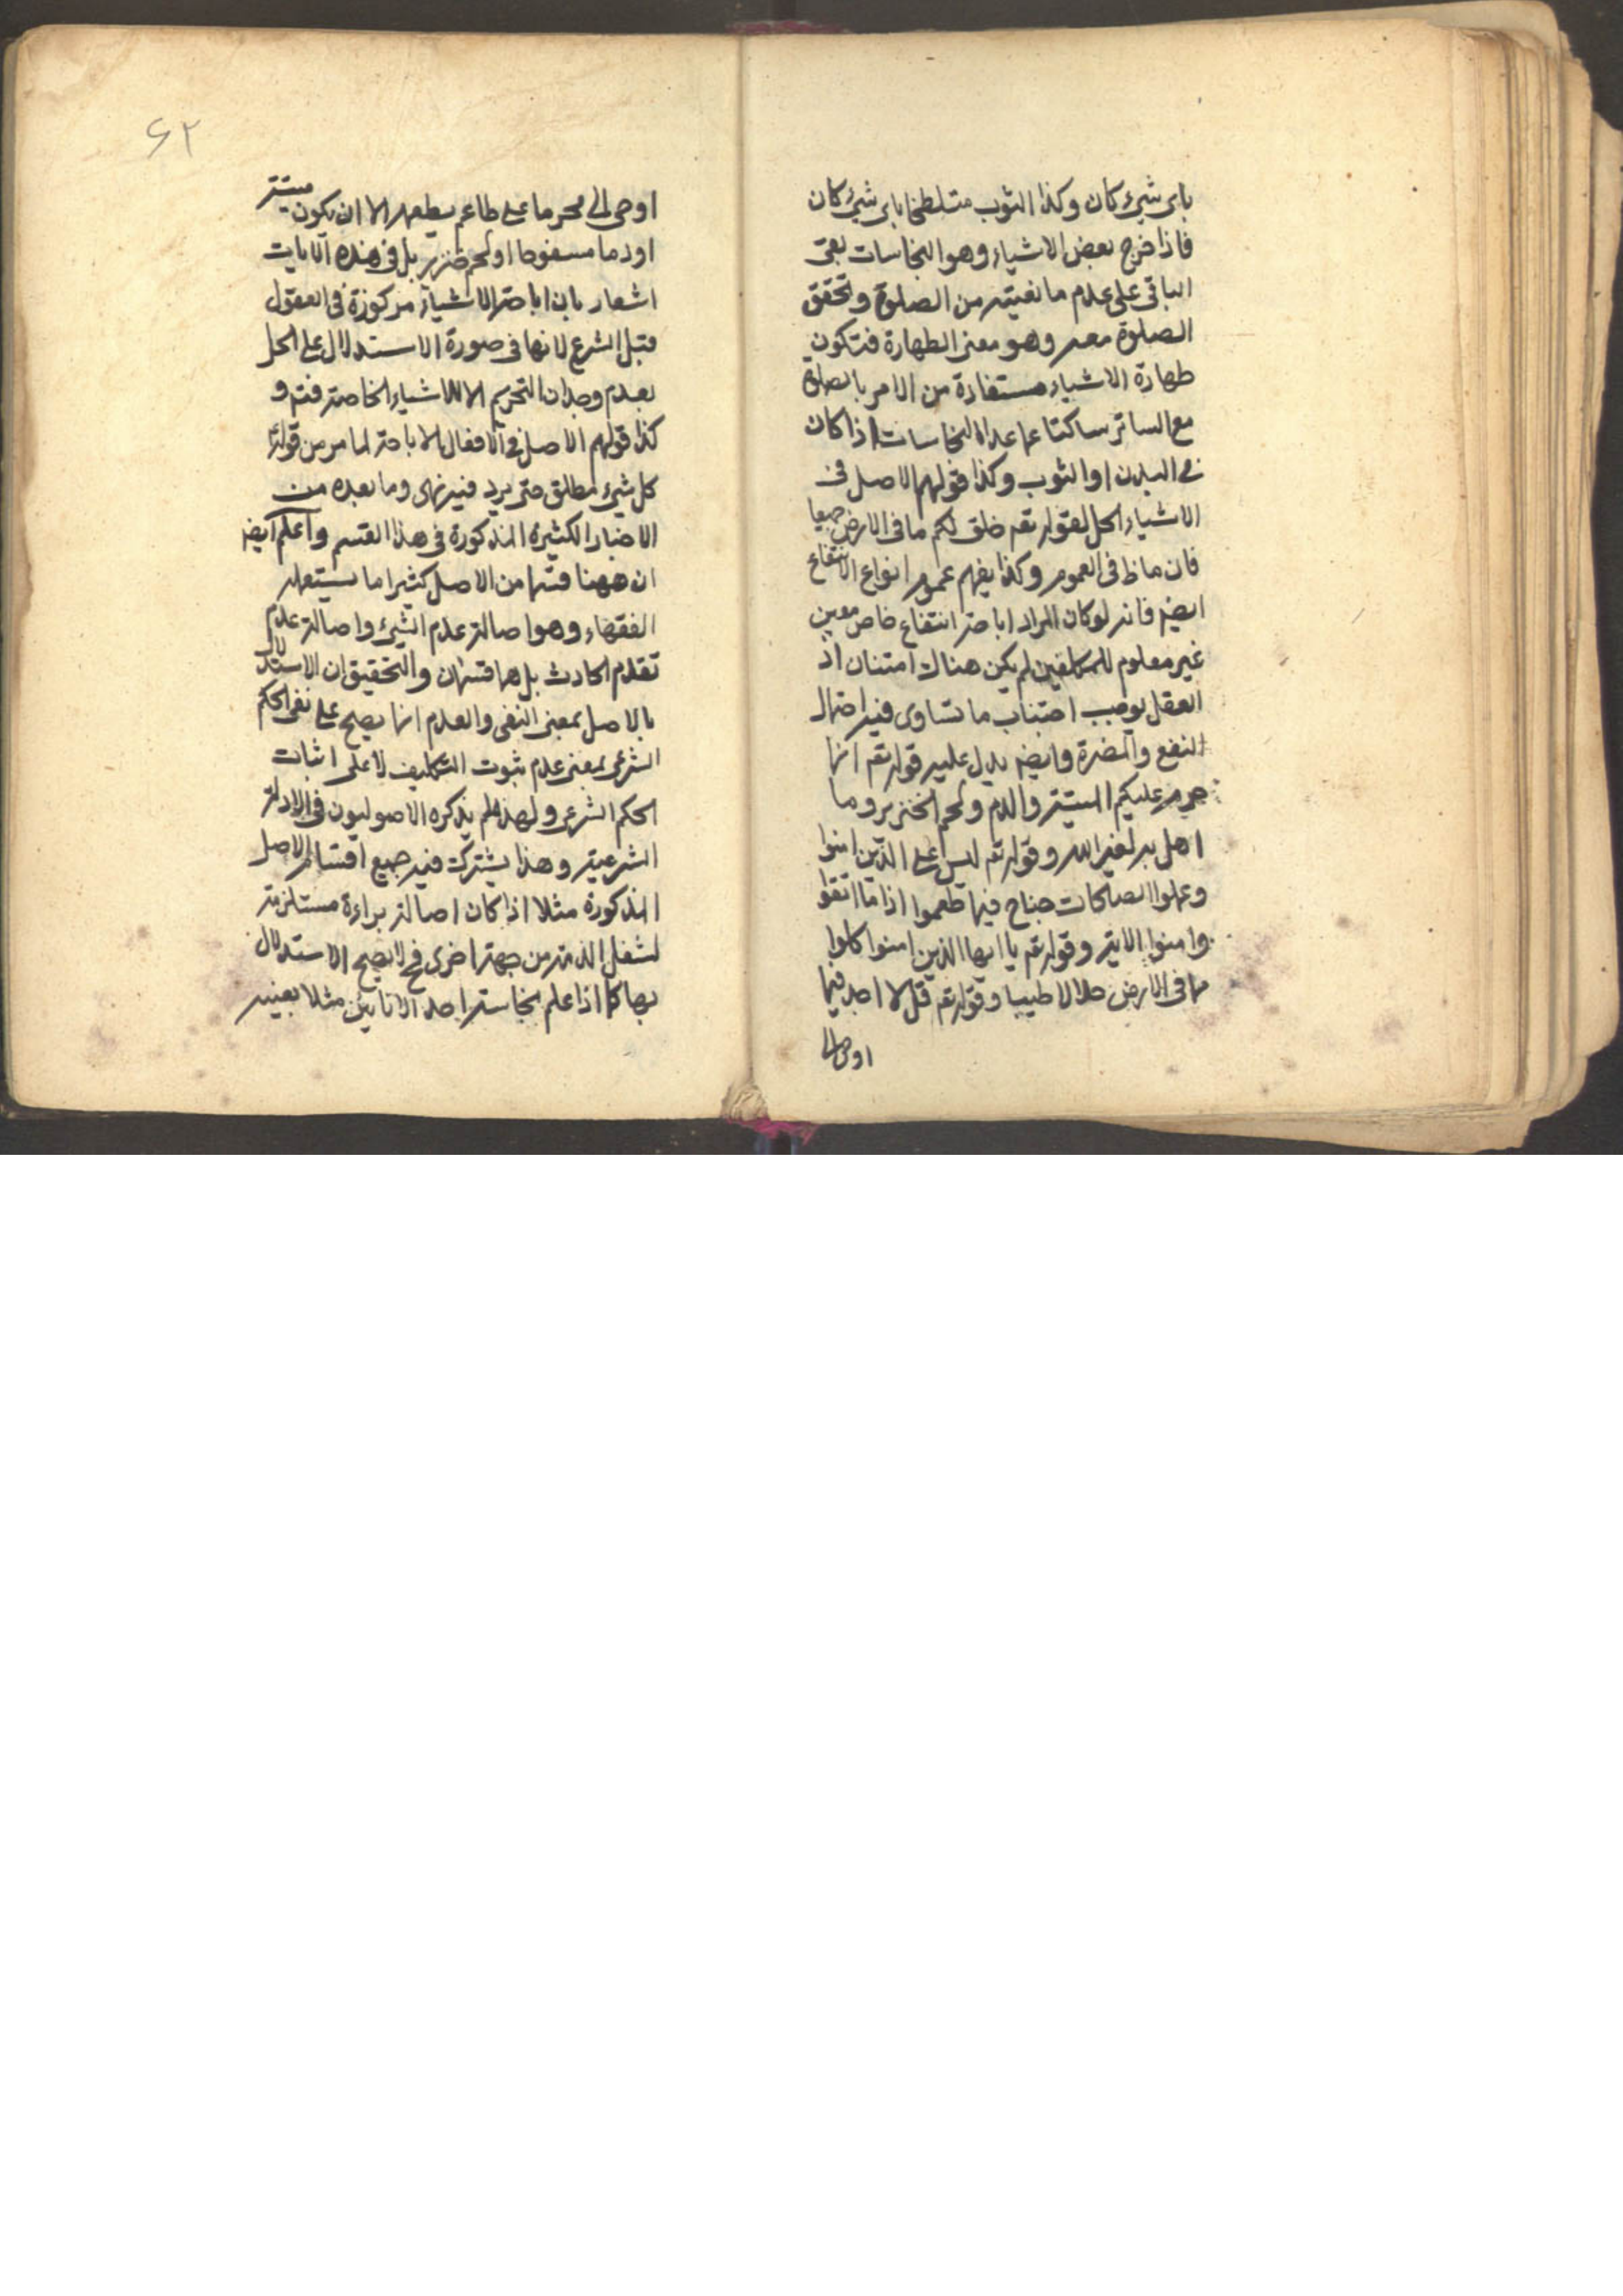 باى شىء كان وكذا الثوب متلطخا باى شىء كان
فاذا خرج بعض الاشياء وهو النجاسات بقى
الباقى على عدم مانعيته من الصلوة وتحقق
الصلوة معه وهو معنى الطهارة فتكون
طهارة الاشياء مستفادة من الامر بالصلوة
مع الساتر ساكتا عما عدا النجاسات اذا كان
فى البدن او الثوب وكذا قولهم الاصل فى
الاشياء الحل لقوله تعم خلق لكم ما فى الارض جميعا
فان ما ظ فى العموم وكذا يفهم عموم انواع الانتفاع
ايضم فانه لو كان المراد اباحة انتفاع خاص معين
غير معلوم للمكلفين لم يكن هناك امتنان اذ
العقل يوجب اجتناب ما تساوى فيه احتمال
النفع والمضرة وايضم يدل عليه قوله تعم انما
حرم عليكم الميتة والدم ولحم الخنزير وما
اهل به لغير الله وقوله تعم ليس على الذين امنوا
وعملوا الصالحات جناح فيما طعموا اذا ما اتقوا
وامنوا الاية وقوله تعم يا ايها الذين امنوا كلوا
مما فى الارض حلالا طيبا وقوله تعم قل لا اجد فيما
اوحى الى
٦٢
اوحى الى محرما على طاعم يطعمه الا ان يكون ميتة
او دما مسفوحا او لحم خنزير بل فى هذه الايات
اشعار بان اباحة الاشياء مركوزة فى العقول
قبل الشرع لانها فى صورة الاستدلال على الحل
بعدم وجدان التحريم الا للاشياء الخاصة فتم و
كذا قولهم الاصل فى الافعال الاباحة لما مر من قوله ع
كل شىء مطلق حتى يرد فيه نهى وما بعده من
الاخبار الكثيرة المذكورة فى هذا القسم واعلم ايضم
ان ههنا قسما من الاصل كثيرا ما يستعمله
الفقهاء وهو اصالة عدم الشىء واصالة عدم
تقدم الحادث بل هما قسمان والتحقيق ان الاستدلال
بالاصل بمعنى النفى والعدم انما يصح على نفى الحكم
الشرعى بمعنى عدم ثبوت التكليف لا على اثبات
الحكم الشرعى ولهذا لم يذكره الاصوليون فى الادلة
الشرعية وهذا يشترك فيه جميع اقسام الاصل
المذكورة مثلا اذا كان اصالة براءة مستلزمة
لشغل الذمة من جهة اخرى فح لا يصح الاستدلال
بها كما اذا علم نجاسة احد الانائين مثلا بعينه